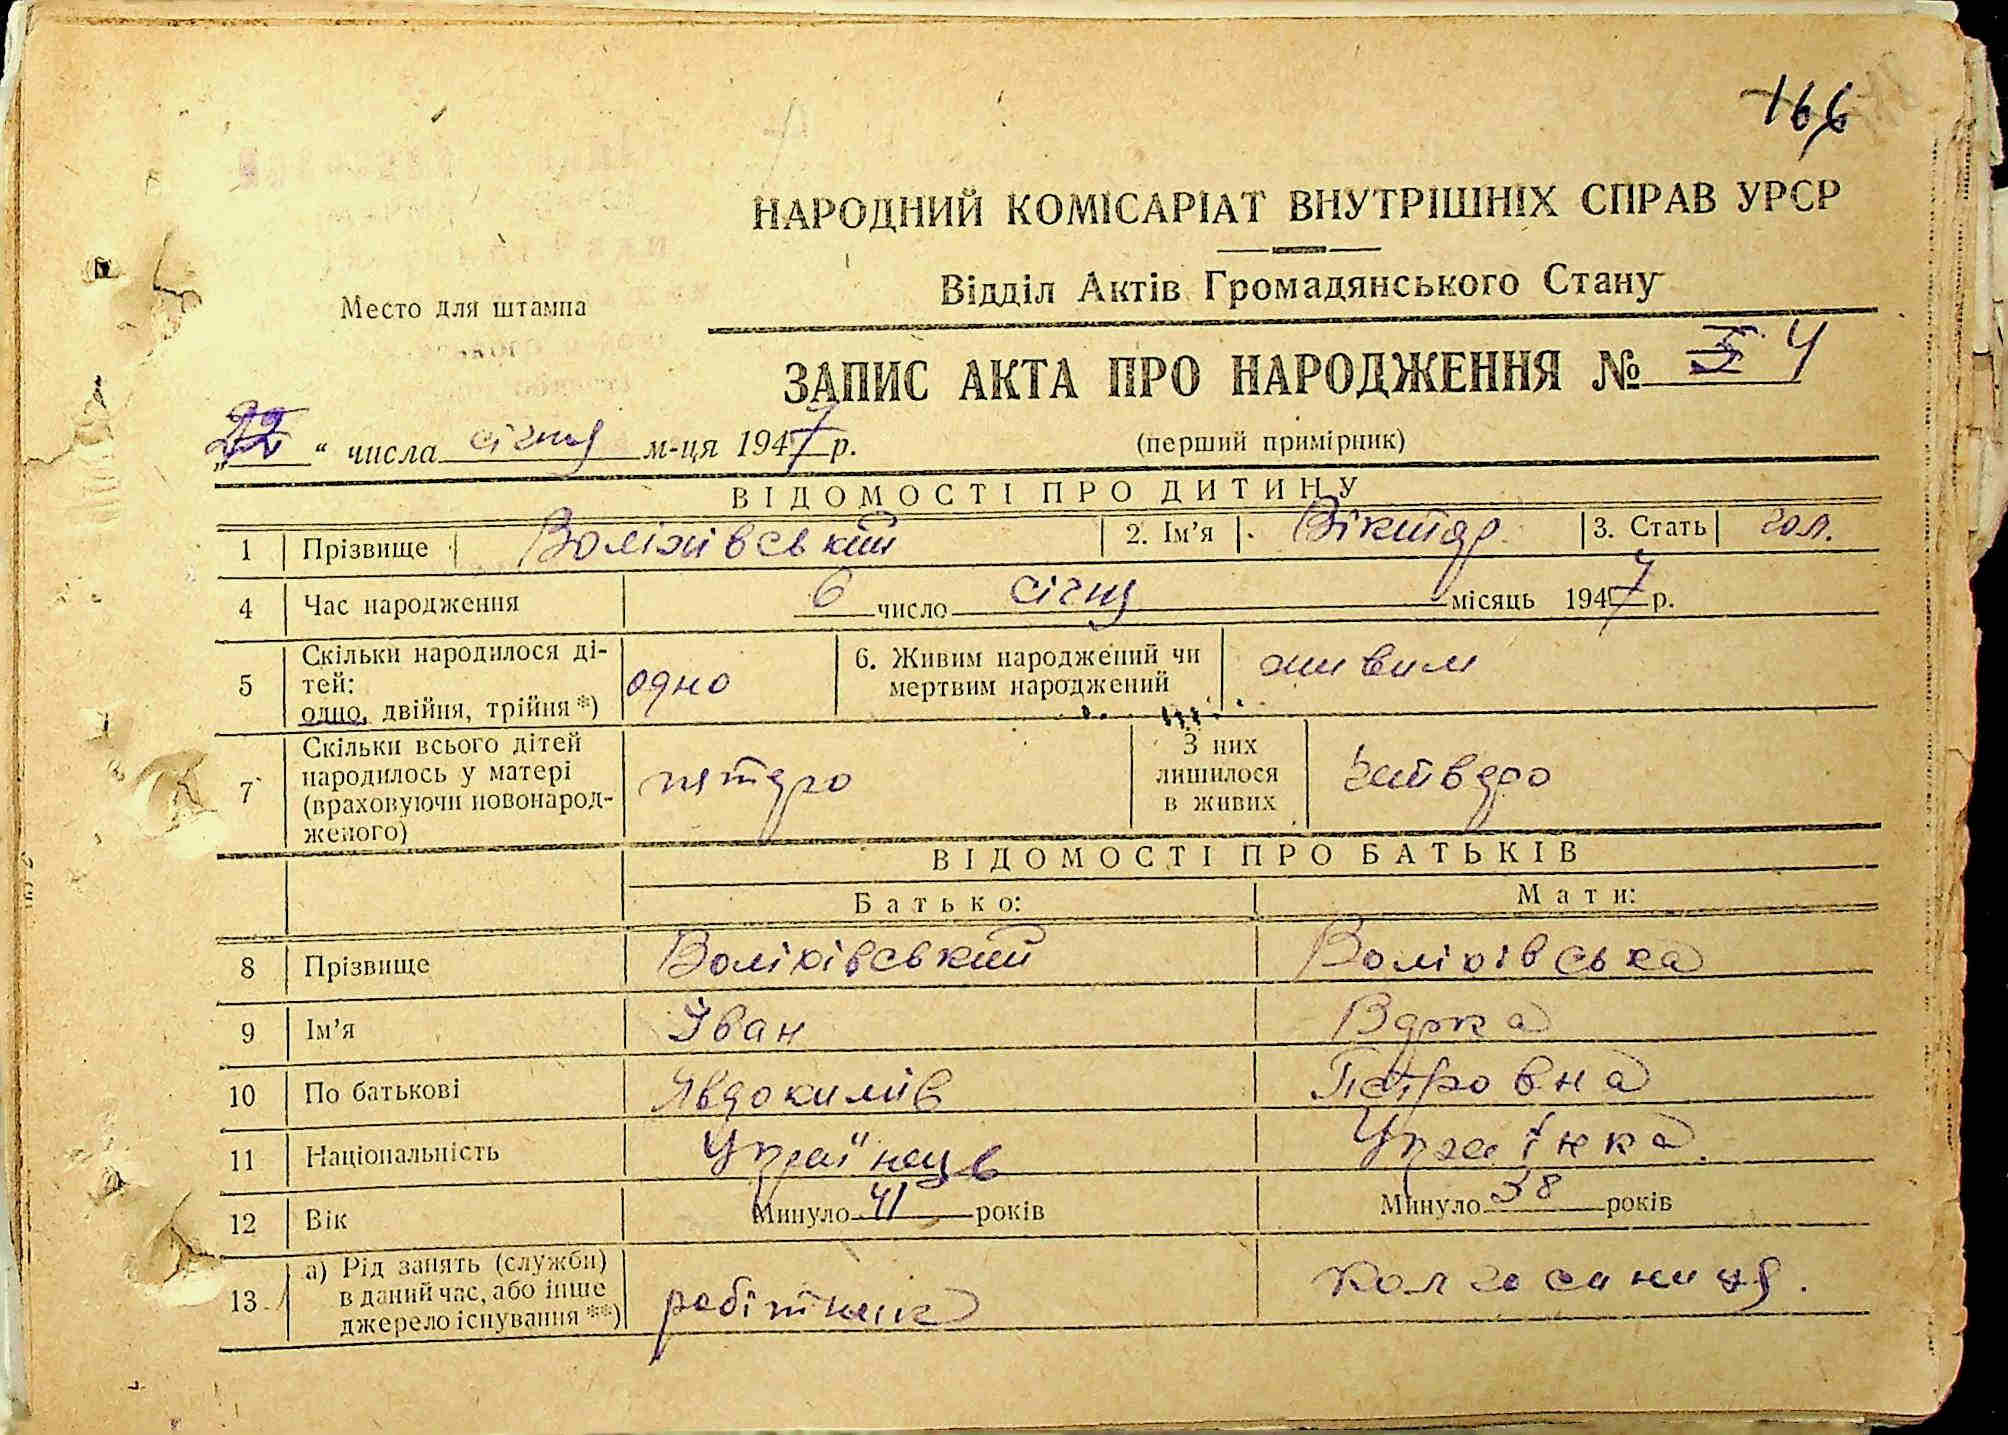 166
НАРОДНИЙ КОМІСАРІАТ ВНУТРІШНІХ СПРАВ УРСР
Відділ Актів Громадянського Стану
Место для штампа
ЗАПИС АКТА ПРО НАРОДЖЕННЯ № 4
„22“ числа січня м-ця 1947 р.
(перший примірник)
ВІДОМОСТІ ПРО ДИТИНУ
1 Прізвище Воліківський 2. Ім’я Віктор 3. Стать чол.
4 Час народження 6 число січня місяць 1947 р.
5 Скільки народилося ді-
тей:
одно, двійня, трійня *) одно
6. Живим народжений чи
мертвим народжений живим
7 Скільки всього дітей
народилось у матері
(враховуючи новонарод-
женого) пятеро
З них
лишилося
в живих четверо
ВІДОМОСТІ ПРО БАТЬКІВ
Батько: Мати:
8 Прізвище Воліківський Воліківська
9 Ім’я Іван
10 По батькові Явдокимів Петровна
11 Національність Українець Українка
12 Вік Минуло 41 років Минуло 38 років
13. а) Рід занять (служби)
в даний час, або інше
джерело існування **) робітник колгосниця.